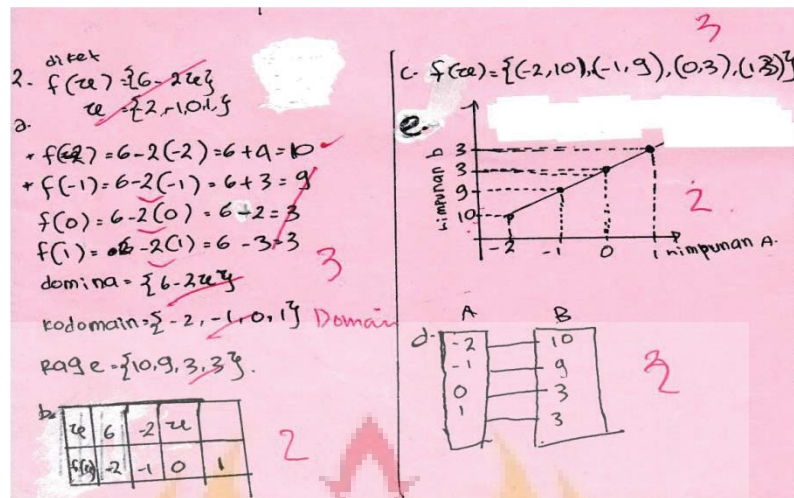 diket
2. f(x) = {6-2x}
x = {2,-1,0,1,}
a.
* f(-2) = 6-2(-2) = 6+4 = 10
* f(-1) = 6-2(-1) = 6+3 = 9
f(0) = 6-2(0) = 6-2 = 3
f(1) = 6-2(1) = 6-3 = 3
3
domina = {6-2x}
kodomain = {-2,-1,0,1} Domain
Rage = {10,9,3,3}.
b.
x 6 -2 x
f(x) -2 -1 0 1
2
3
c. f(x) = {(-2,10),(-1,9),(0,3),(1,3)}
e.
himpunan b
3
3
9
10
-2 -1 0 1 himpunan A.
2
d.
A B
-2 10
-1 9
0 3
1 3
3